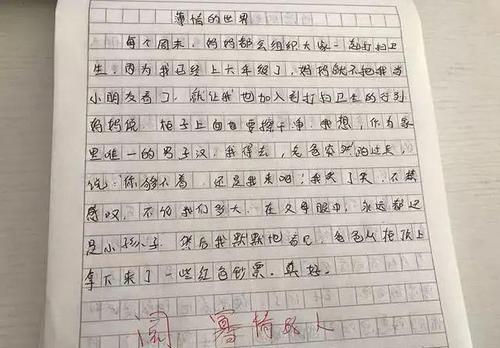 薄情的世界
每个周末，妈妈都会组织大家一起打扫卫
生，因为我已经上六年级了，妈妈就不把我当
小朋友看了，就让我也加入到打扫卫生的行列
妈妈说：柜子上面也要擦干净，我想，作为家
里唯一的男子汉，我得去，爸爸突然跑过来，
说：你够不着，还是我来吧！我笑了笑，不禁
感叹，不论我们多大，在父母眼中，永远都还
是小孩子，然后我默默地看见，爸爸从柜顶上
拿下来了一些红色钞票。真好。
阅，写情